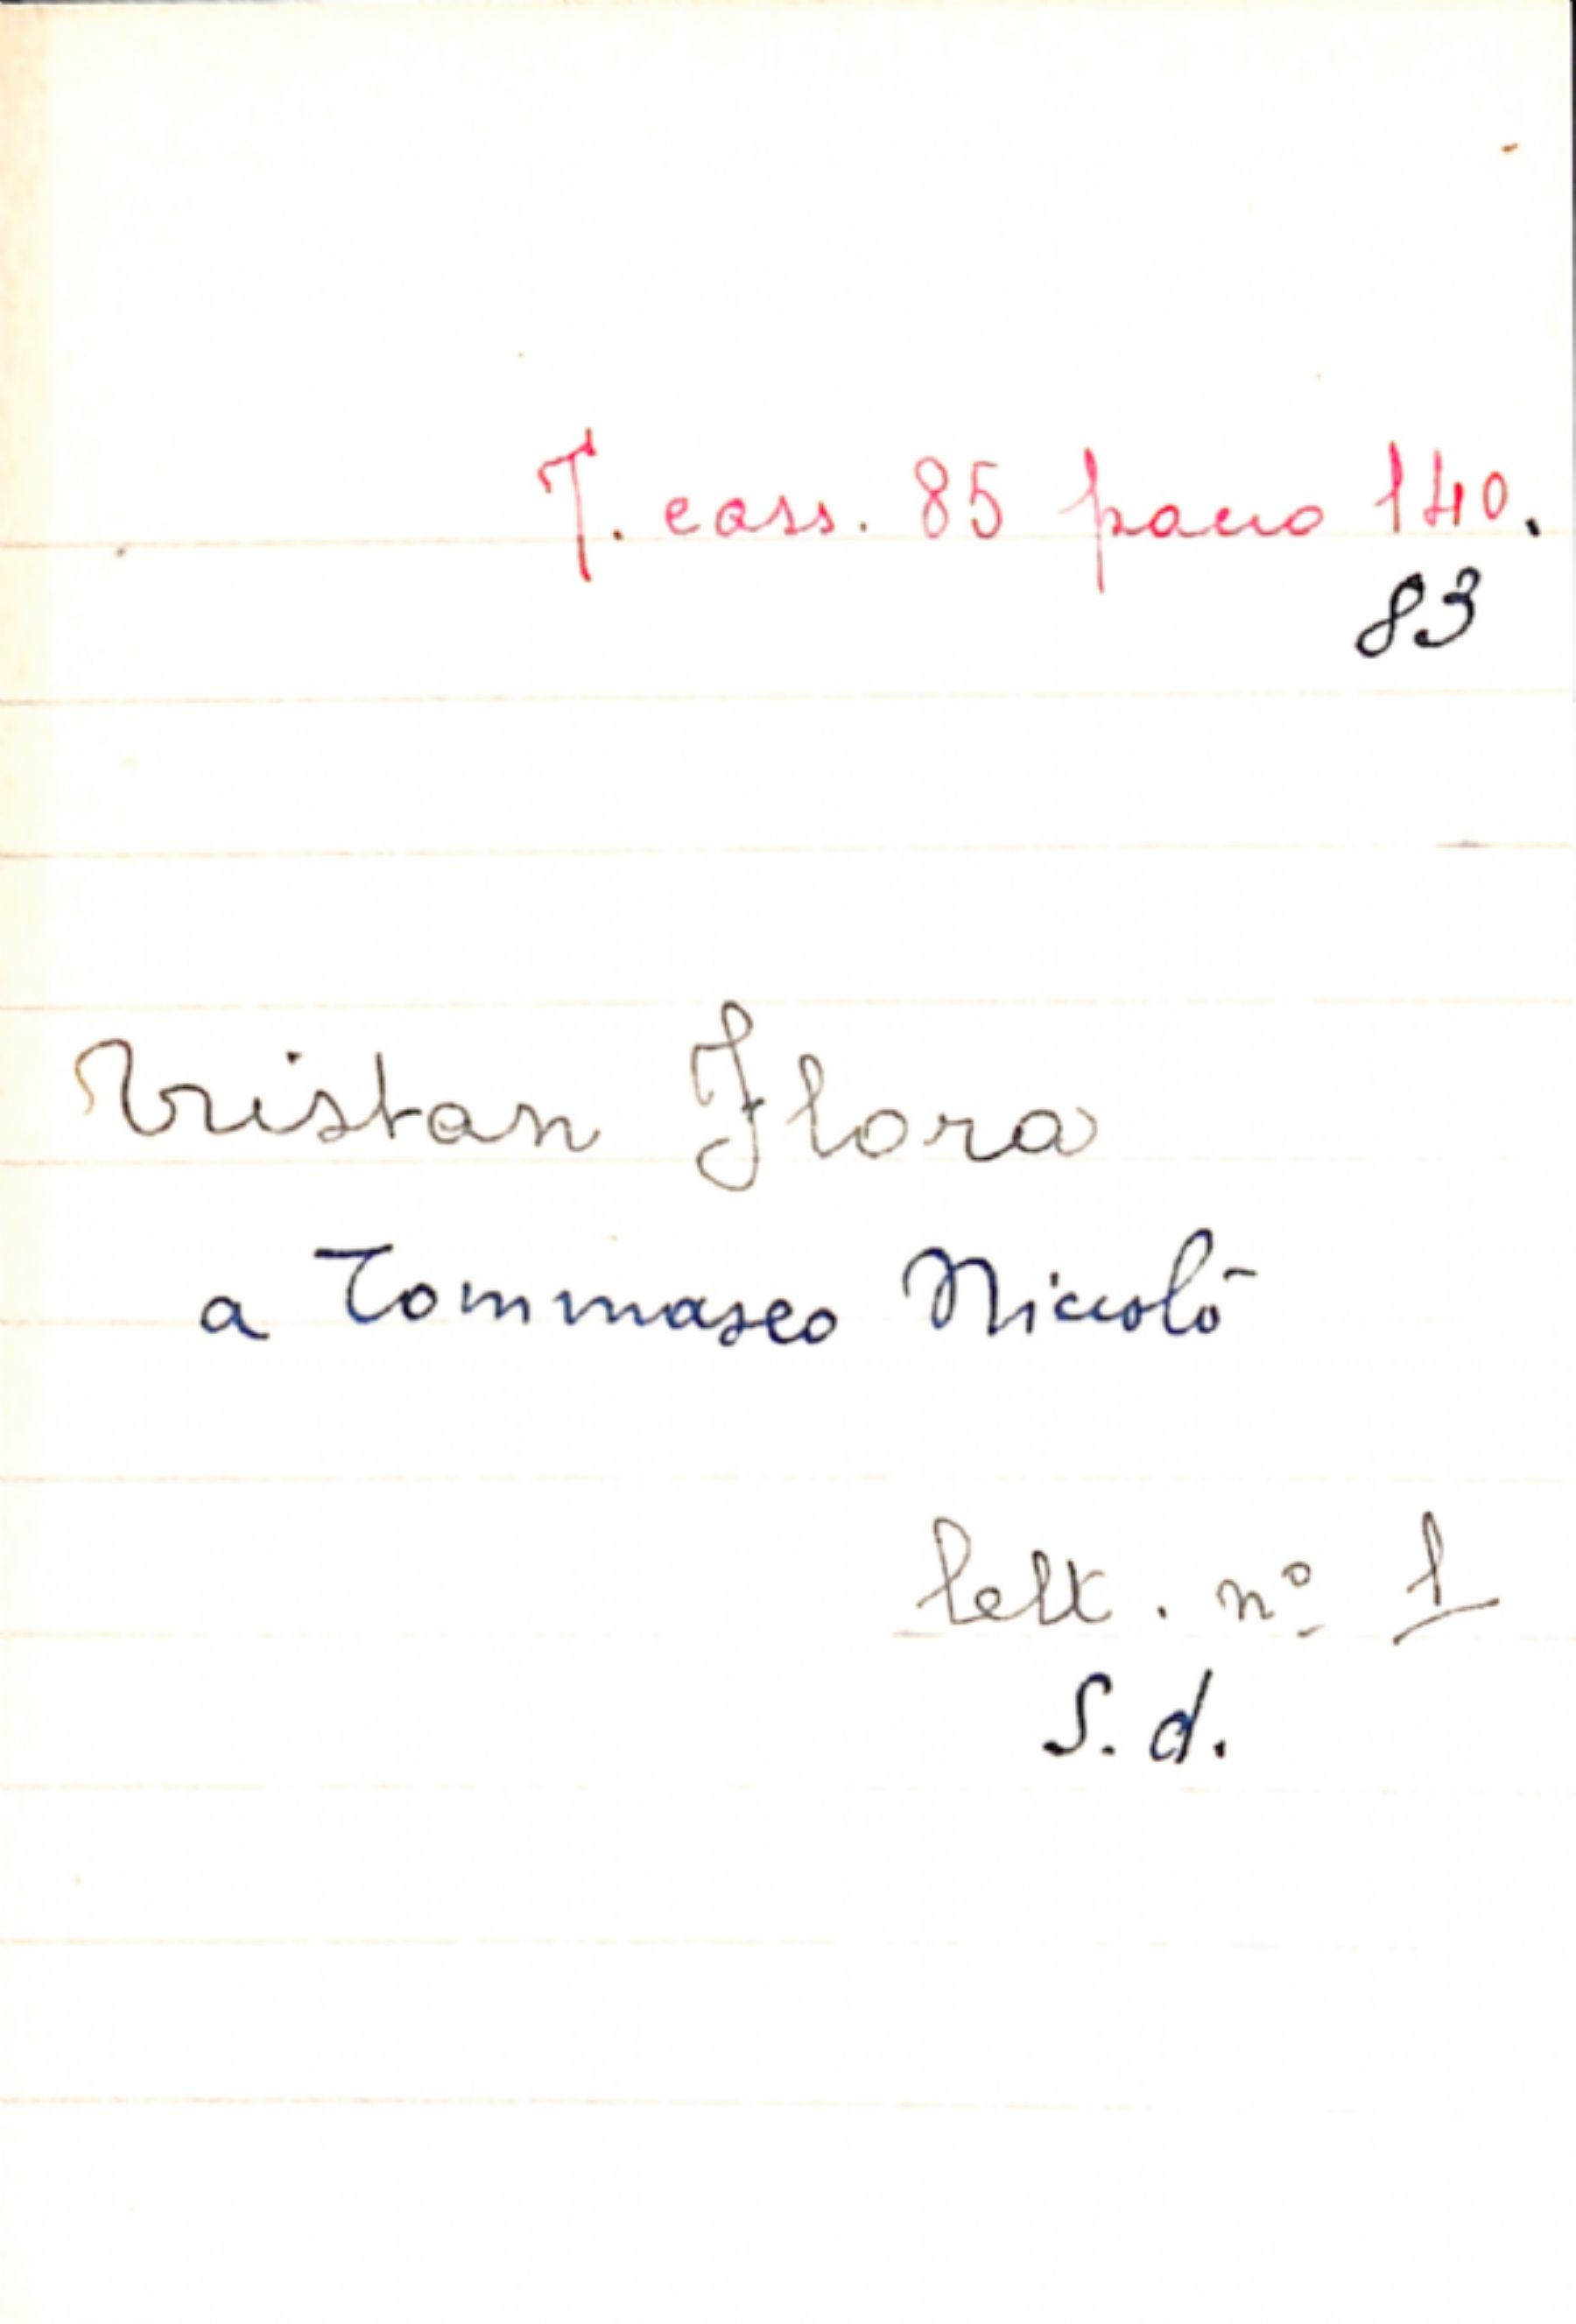 T. cass. 85 pacco 140.
83
Tristan Flora
a Tommaseo Niccolò
lett. nº 1
S. d.